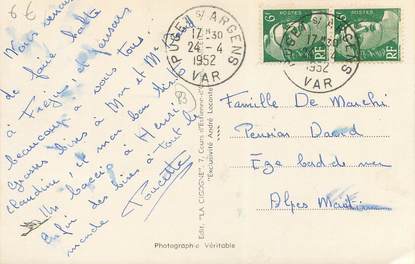 6€
Nous venons
de faire halte
à Fréjus et pensons
beaucoup à vous tous.
Grosses bises à Mm et Mr
Claudine, et mon bon
baccio à Henri
Enfin des bises à tout le
monde
Poucette
8
PUGET S/ ARGENS
17H30
24-4
1952
VAR
POSTES
6F
RF
POSTES
RF
PUGET S/ ARGENS
17H30
1952
VAR
Edit. "LA CIGOGNE", 7, Cours d'Estienne-d'
Exclusivité André Leconte
Photographie Véritable
Famille De Marchi
Pension David
Eze bord de mer
Alpes Maritimes